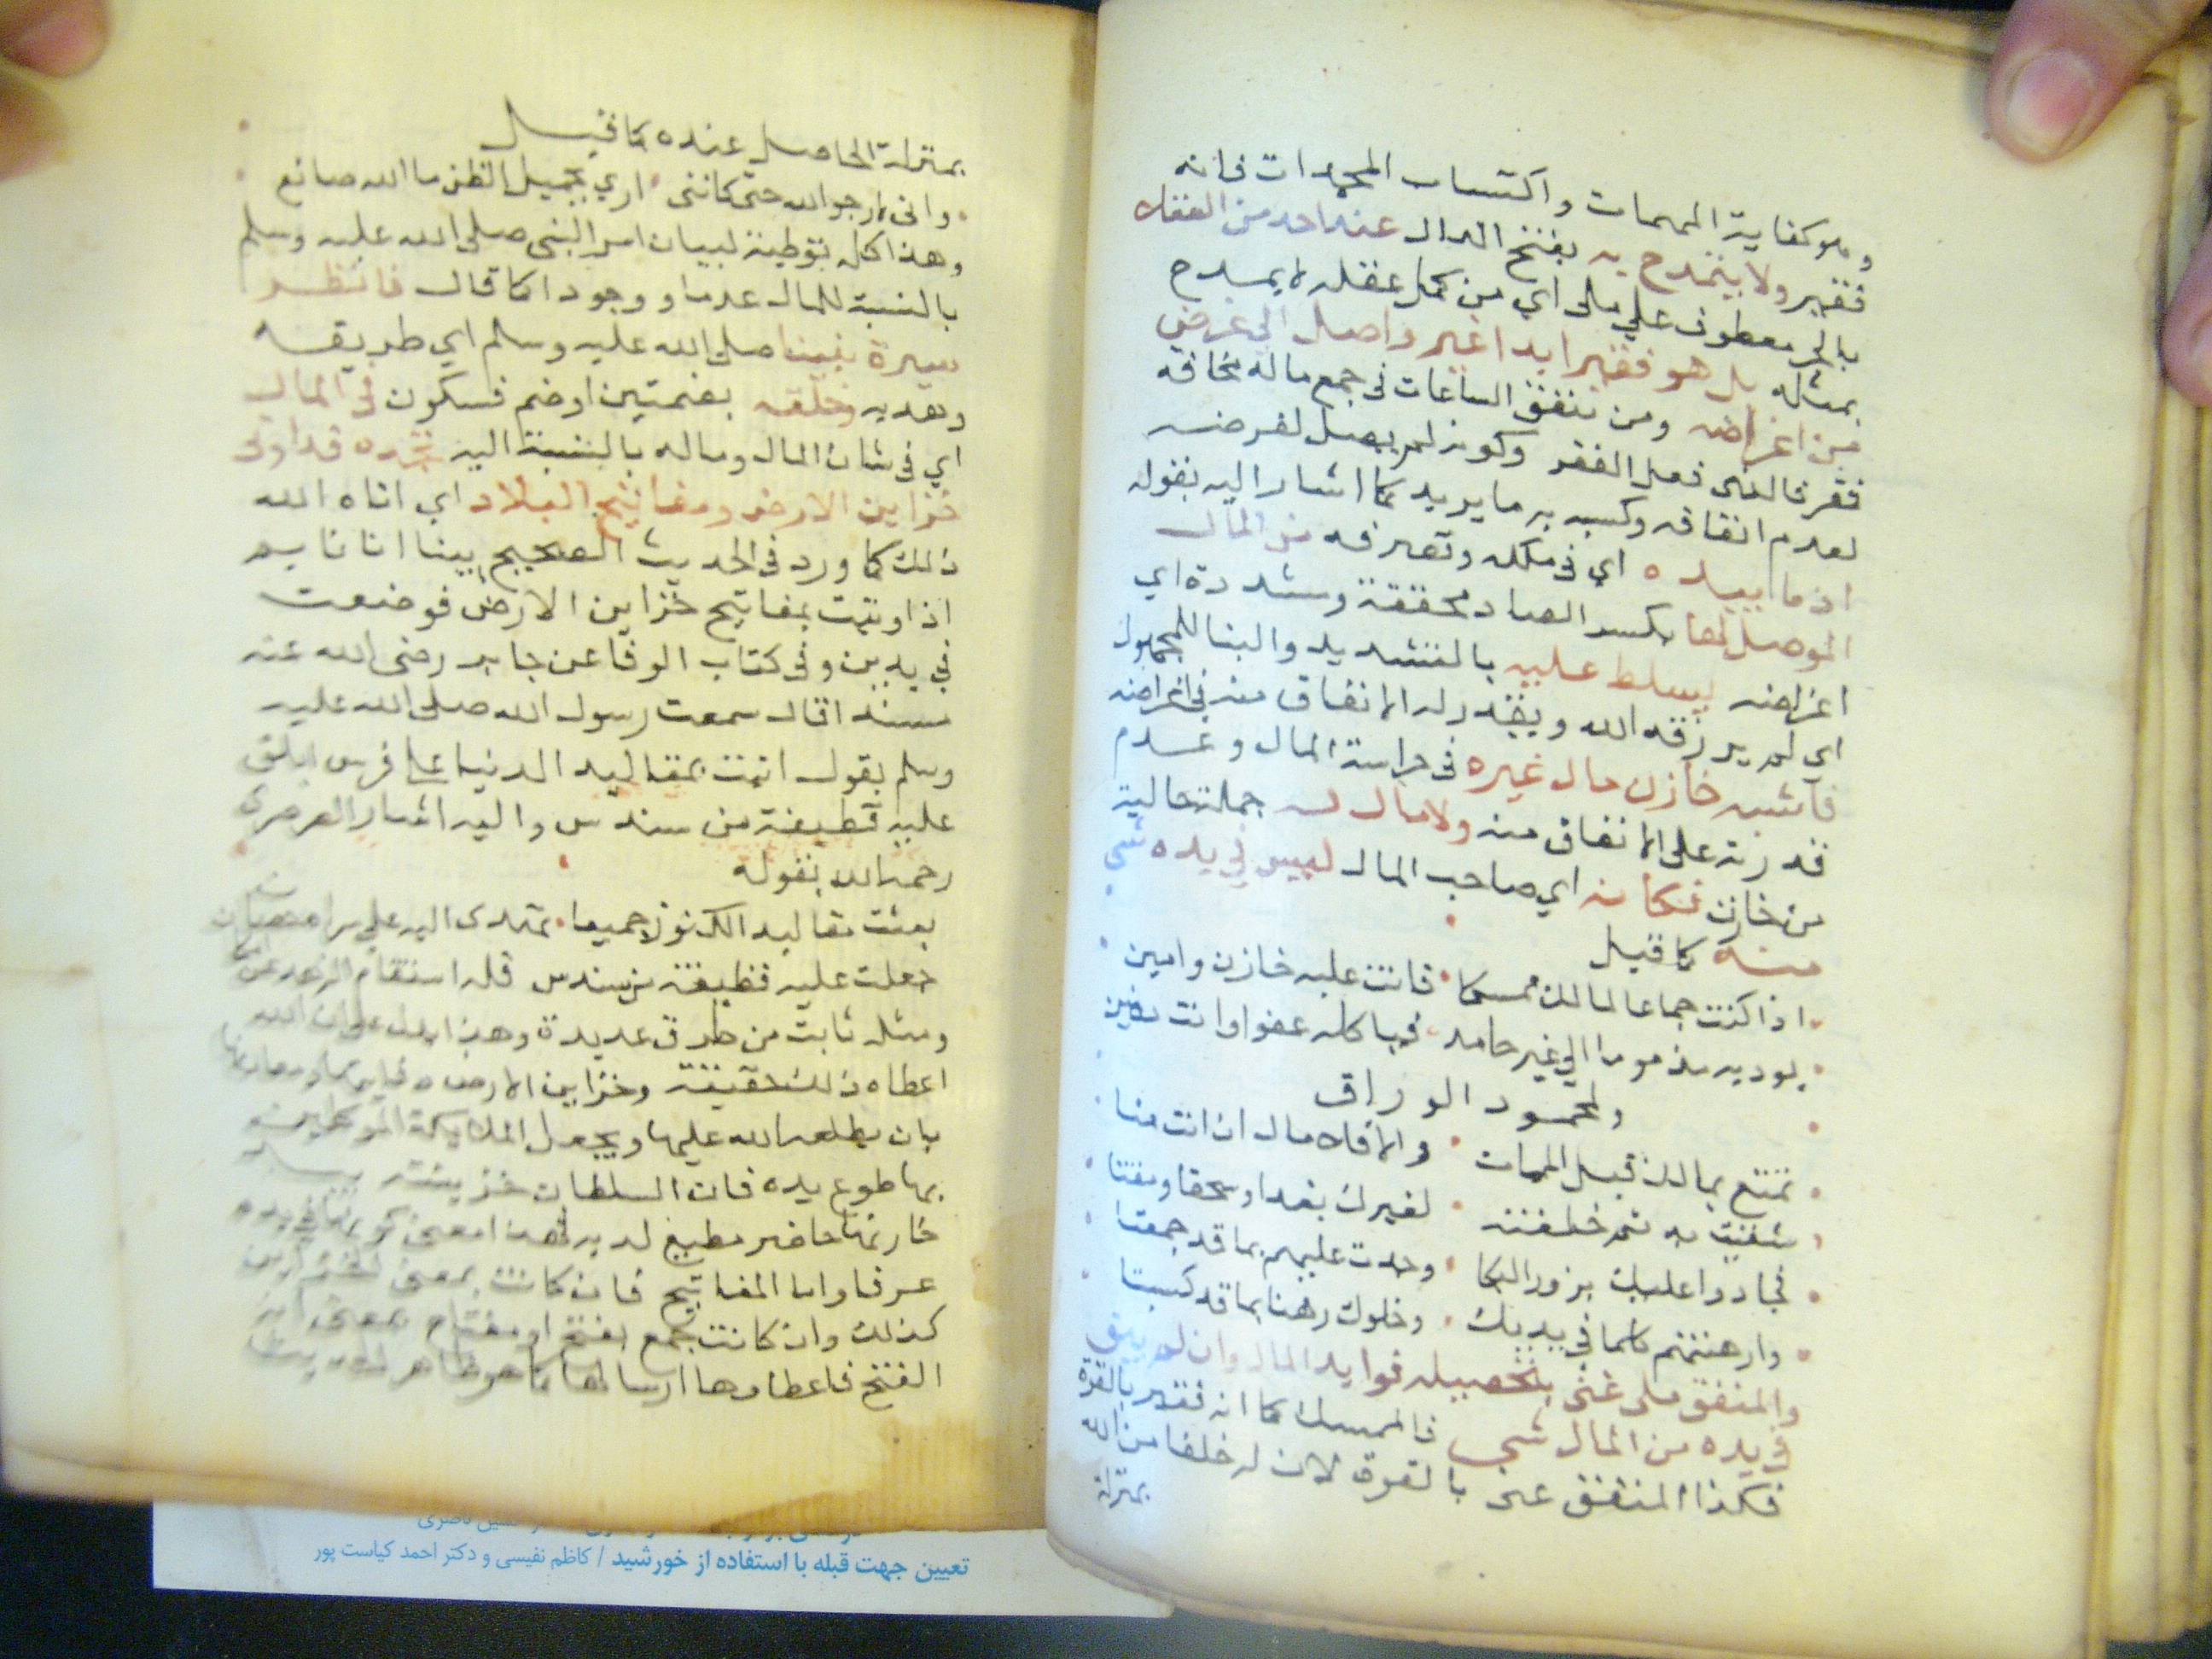 وهو كفاية المهمات واكتساب المحمدات فانه
فقير ولا يتمدح به بفتح الدال عند احد من العقلاء
بالجر معطوف علي ملى اي من كمل عقله لا يمدح
بمثله بل هو فقير ابدا غير واصل الي غرض
من اغراضه ومن ينفق الساعات في جمع ماله مخافة
فقر فالذي فعل الفقر وكونه لم يصل لغرضه
لعدم انفاقه وكسبه به ما يريد كما اشار اليه بقوله
اذ ما بيده اي في ملكه وتصرفه من المال
الموصل لها بكسر الصاد مخففة ومشددة اي
اغراضه لم يسلط عليه بالتشديد والبنا للمجهول
اي لم يرزقه الله ويقدر له الانفاق منه في اغراضه
فاشبه خازن مال غيره في حراسة المال وعدم
قدرته على الانفاق منه ولا مال له جملة حالية
من خازن فكانه اي صاحب المال ليس في يده شي
منه كما قيل
اذا كنت جماعا لمالك ممسكا فانت عليه خازن وامين
يوديه مذموما الي غير حامد فياكله عفوا وانت دفين
ولمحمود الوراق
تمتع بمالك قبل الممات والا فلا مال ان انت متا
شقيت به ثم خلفته لغيرك بعدا وسحقا ومقتا
فجادوا عليك بزور البكا وجدت عليهم بما قد جمعتا
وارهنتهم كلما في يديك وخلوك رهنا بما قد كسبتا
والمنفق ملى غني بتحصيله فوايد المال وان لم يبق
في يده من المال شي فالممسك كما انه فقير بالقوة
فكذا المنفق غنى بالقوة لان له خلفا من الله
بمنزلة
بمنزلة الحاصل عنده كما قيل
واني لارجو الله حتى كانني اري بجميل الظن ما الله صانع
وهذا كله توطية لبيان امر النبي صلى الله عليه وسلم
بالنسبة للمال عدما ووجودا كما قال فانظر
سيرة نبينا صلى الله عليه وسلم اي طريقته
وهديه وخلقه بضمتين او ضم فسكون في المال
اي في شان المال وماله بالنسبة اليه تجده قد اوتى
خزاين الارض ومفاتيح البلاد اي اتاه الله
ذلك كما ورد في الحديث الصحيح بينا انا نايم
اذ اوتيت بمفاتيح خزاين الارض فوضعت
في يدي وفي كتاب الوفا عن جابر رضي الله عنه
مسندا قال سمعت رسول الله صلى الله عليه
وسلم يقول اتيت بمقاليد الدنيا على فرس ابلق
عليه قطيفة من سندس واليه اشار الصرصرى
رحمه الله بقوله
بعثت مقاليد الكنوز جميعها تهدى اليه على سراة حصان
جعلت عليه قطيفة من سندس فله استقام الزهد عن
ومثله ثابت من طرق عديدة وهذا يدل على ان الله
اعطاه ذلك حقيقة وخزاين الارض
بان يطلعه الله عليها ويجعل الملايكة الموكلين
بها طوع يده فان السلطان خزينته بيد
خازنها حاضر مطيع لديه فهذا معنى كونها في يده
عرفا واما المفاتيح فان كانت بمعنى الخزاين
كذلك وان كانت جمع مفتح او مفتاح بمعنى الة
الفتح فاعطاوها ارسالها كما هو ظاهر الحديث
تعیین جهت قبله با استفاده از خورشید / کاظم نفیسی و دکتر احمد کیاست پور